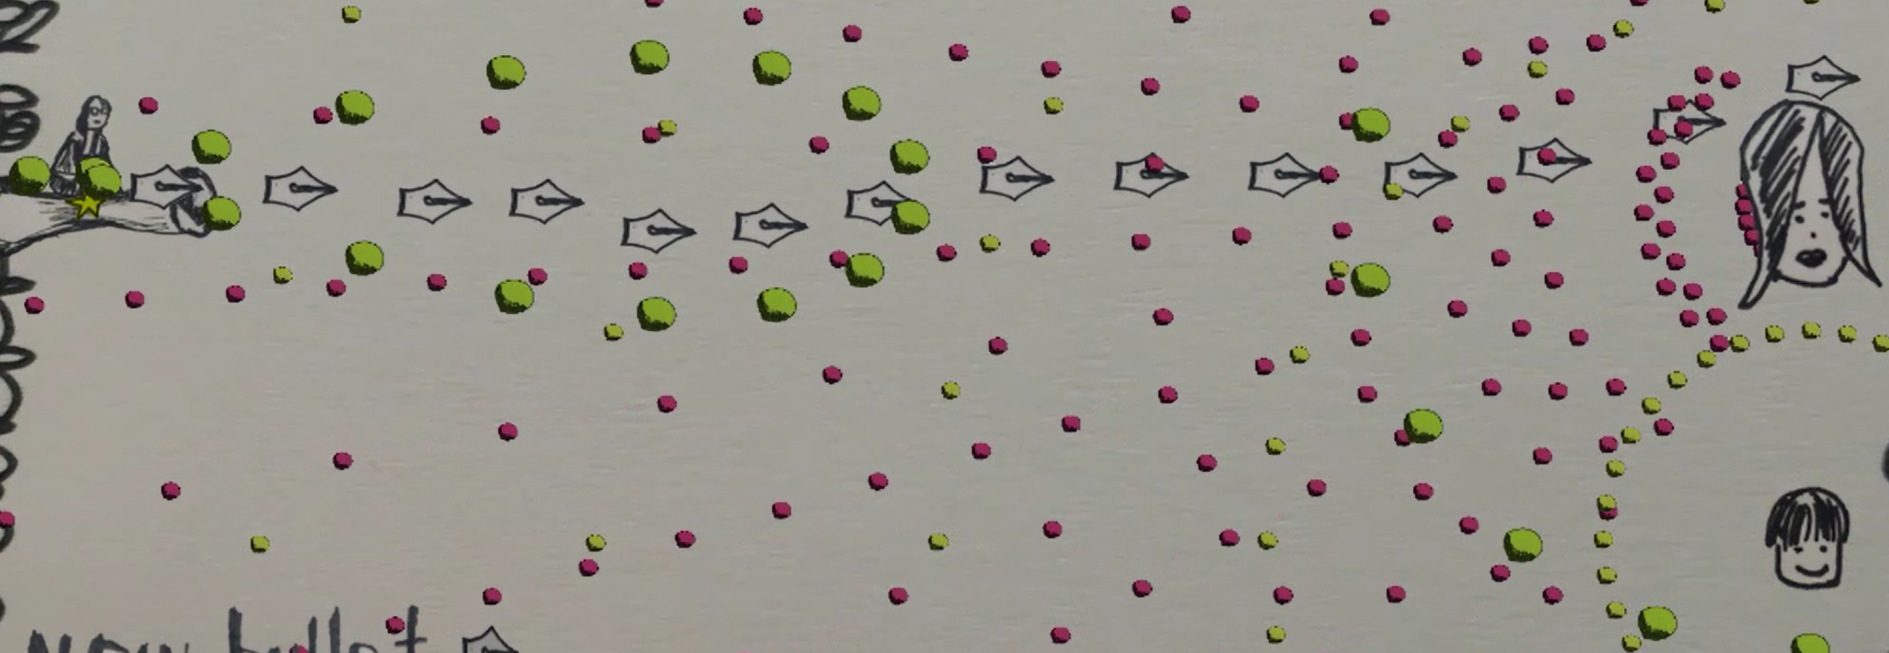 new bullet